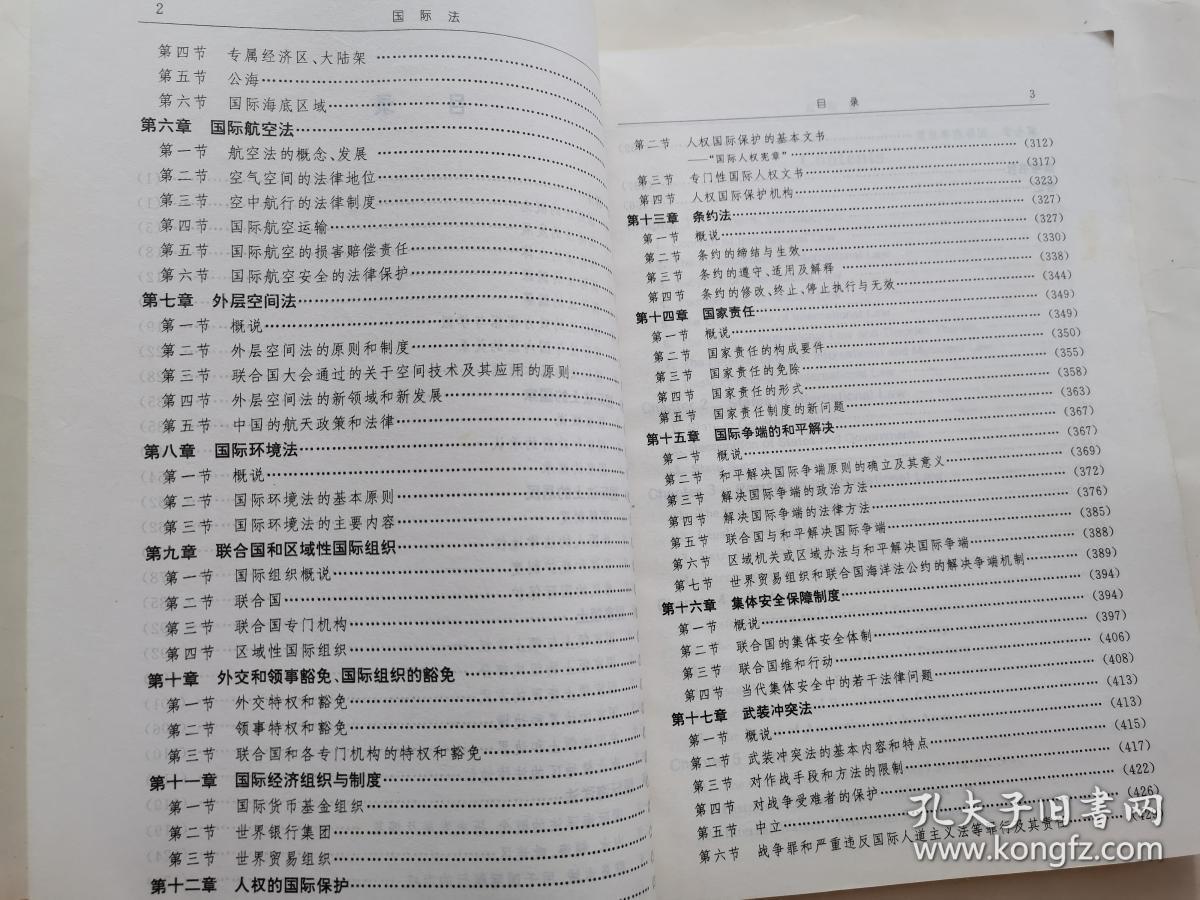 2
国 际 法
第四节 专属经济区、大陆架
第五节 公海
第六节 国际海底区域
第六章 国际航空法
第一节 航空法的概念、发展
第二节 空气空间的法律地位
第三节 空中航行的法律制度
第四节 国际航空运输
第五节 国际航空的损害赔偿责任
第六节 国际航空安全的法律保护
第七章 外层空间法
第一节 概说
第二节 外层空间法的原则和制度
第三节 联合国大会通过的关于空间技术及其应用的原则
第四节 外层空间法的新领域和新发展
第五节 中国的航天政策和法律
第八章 国际环境法
第一节 概说
第二节 国际环境法的基本原则
第三节 国际环境法的主要内容
第九章 联合国和区域性国际组织
第一节 国际组织概说
第二节 联合国
第三节 联合国专门机构
第四节 区域性国际组织
第十章 外交和领事豁免、国际组织的豁免
第一节 外交特权和豁免
第二节 领事特权和豁免
第三节 联合国和各专门机构的特权和豁免
第十一章 国际经济组织与制度
第一节 国际货币基金组织
第二节 世界银行集团
第三节 世界贸易组织
第十二章 人权的国际保护
目 录
3
第二节 人权国际保护的基本文书
——“国际人权宪章”(312)
第三节 专门性国际人权文书(317)
第四节 人权国际保护机构(323)
第十三章 条约法(327)
第一节 概说(327)
第二节 条约的缔结与生效(330)
第三节 条约的遵守、适用及解释(338)
第四节 条约的修改、终止、停止执行与无效(344)
第十四章 国家责任(349)
第一节 概说(349)
第二节 国家责任的构成要件(350)
第三节 国家责任的免除(355)
第四节 国家责任的形式(358)
第五节 国家责任制度的新问题(363)
第十五章 国际争端的和平解决(367)
第一节 概说(367)
第二节 和平解决国际争端原则的确立及其意义(369)
第三节 解决国际争端的政治方法(372)
第四节 解决国际争端的法律方法(376)
第五节 联合国与和平解决国际争端(385)
第六节 区域机关或区域办法与和平解决国际争端(388)
第七节 世界贸易组织和联合国海洋法公约的解决争端机制(389)
第十六章 集体安全保障制度(394)
第一节 概说(394)
第二节 联合国的集体安全体制(397)
第三节 联合国维和行动(406)
第四节 当代集体安全中的若干法律问题(408)
第十七章 武装冲突法(413)
第一节 概说(413)
第二节 武装冲突法的基本内容和特点(415)
第三节 对作战手段和方法的限制(417)
第四节 对战争受难者的保护(422)
第五节 中立(426)
第六节 战争罪和严重违反国际人道主义法等罪行及其责任(429)
孔夫子旧书网
www.kongfz.com